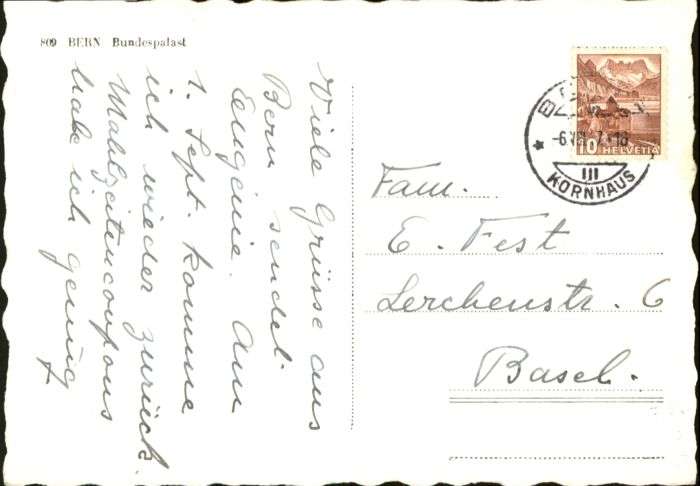 809 BERN Bundespalast
Viele Grüsse aus
Bern sendet
Eugenie. Am
1. Sept. komme
ich wieder zurück.
Mahlzeitencoupons
habe ich genug
10 HELVETIA
KORNHAUS
III
Fam.
E. Fest
Lerchenstr. 6
Basel.